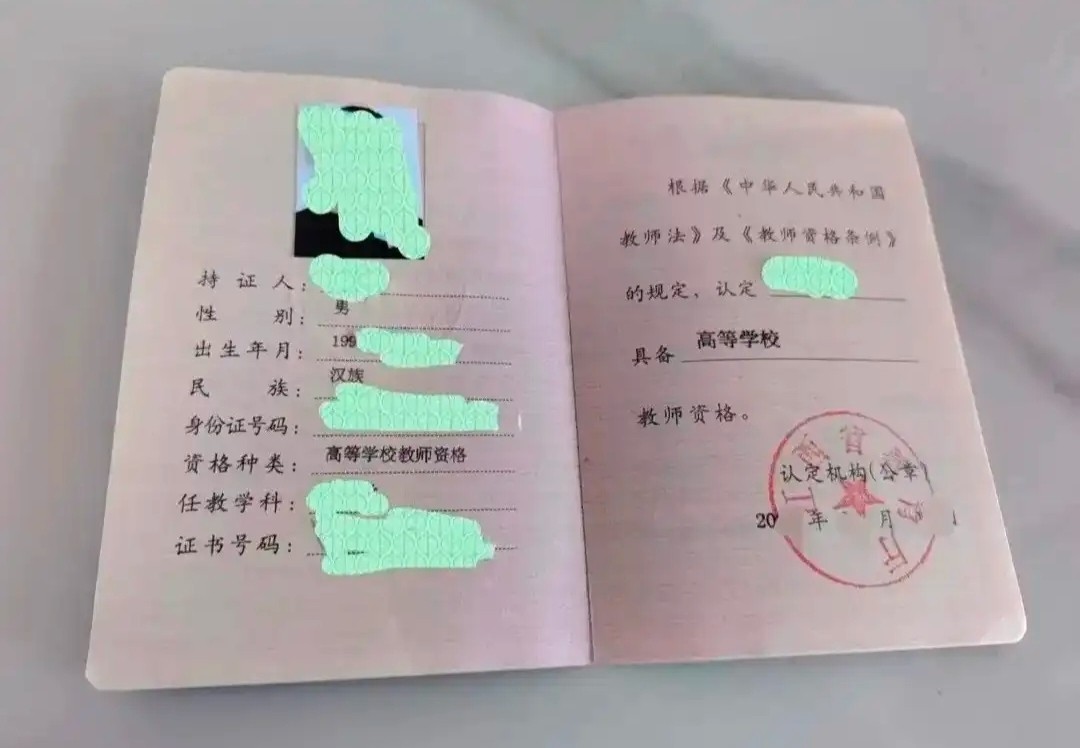 持证人:
性别:男
出生年月:199
民族:汉族
身份证号码:
资格种类:高等学校教师资格
任教学科:
证书号码:
根据《中华人民共和国
教师法》及《教师资格条例》
的规定,认定
具备 高等学校
教师资格。
认定机构(公章)
20 年 月
省 教育厅